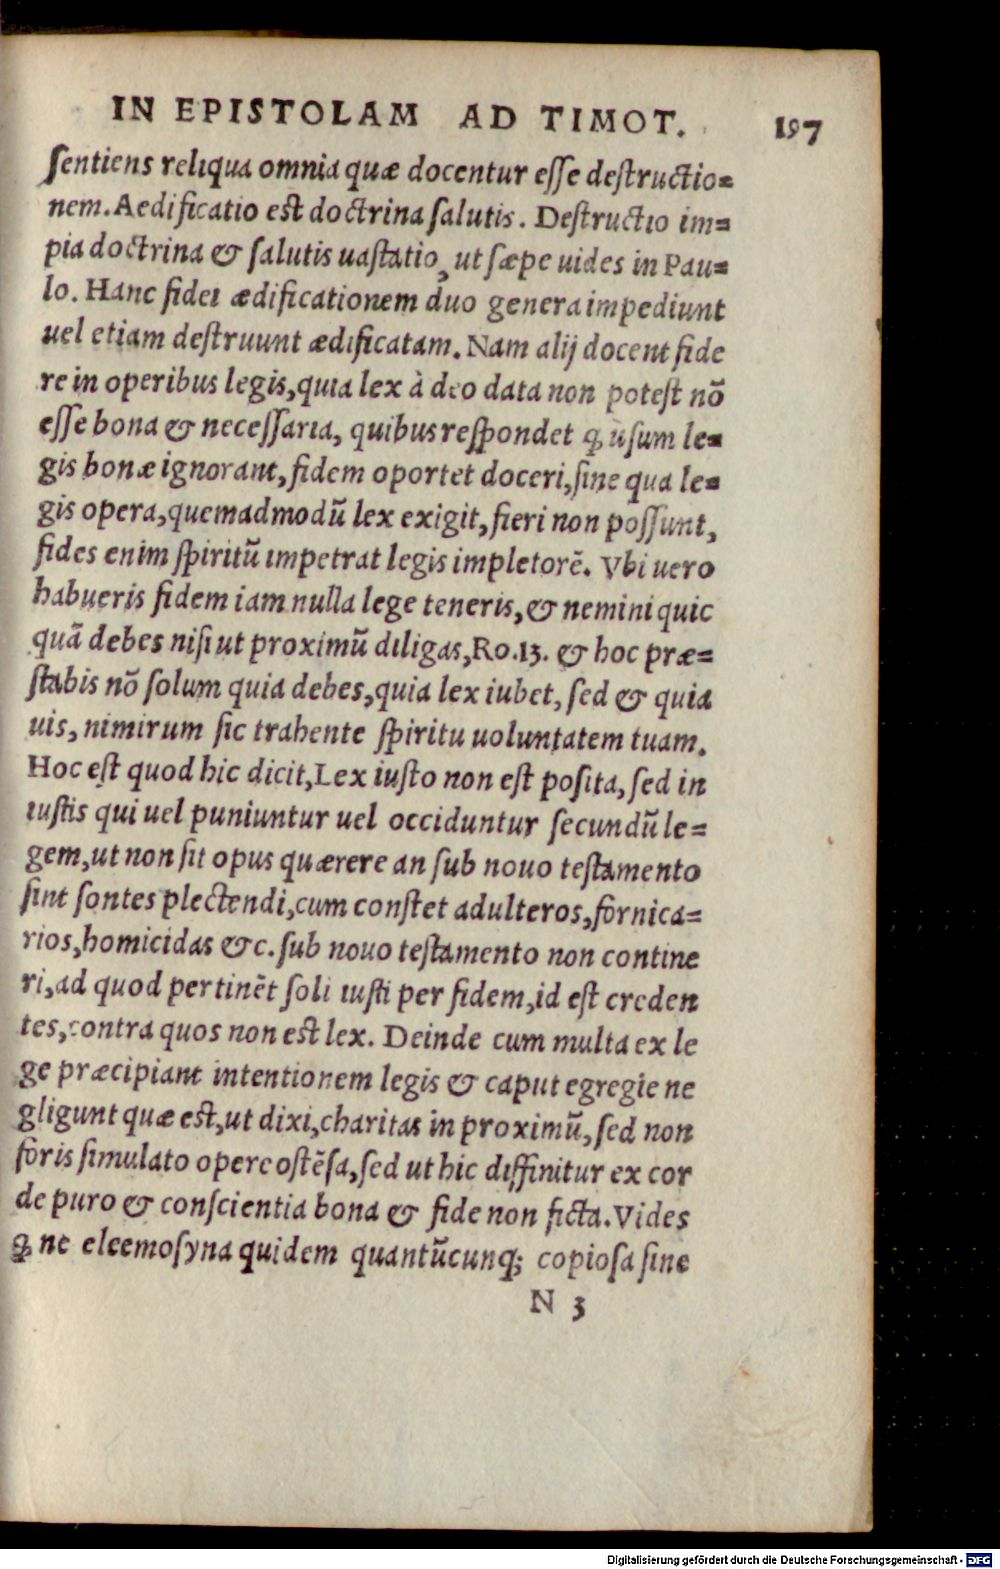 IN EPISTOLAM AD TIMOT. 197
sentiens reliqua omnia quæ docentur esse destructio=
nem. Aedificatio est doctrina salutis. Destructio im=
pia doctrina & salutis uastatio, ut sæpe uides in Pau=
lo. Hanc fidei ædificationem duo genera impediunt
uel etiam destruunt ædificatam. Nam alij docent fide
re in operibus legis, quia lex à deo data non potest nō
esse bona & necessaria, quibus respondet ꝙ usum le=
gis bonæ ignorant, fidem oportet doceri, sine qua le=
gis opera, quemadmodū lex exigit, fieri non possunt,
fides enim spiritū impetrat legis impletorē. Vbi uero
habueris fidem iam nulla lege teneris, & nemini quic
quā debes nisi ut proximū diligas, Ro.13. & hoc præ=
stabis nō solum quia debes, quia lex iubet, sed & quia
uis, nimirum sic trahente spiritu uoluntatem tuam.
Hoc est quod hic dicit, Lex iusto non est posita, sed in
iustis qui uel puniuntur uel occiduntur secundū le=
gem, ut non sit opus quærere an sub nouo testamento
sint sontes plectendi, cum constet adulteros, fornica=
rios, homicidas &c. sub nouo testamento non contine
ri, ad quod pertinēt soli iusti per fidem, id est creden
tes, contra quos non est lex. Deinde cum multa ex le
ge præcipiant intentionem legis & caput egregie ne
gligunt quæ est, ut dixi, charitas in proximū, sed non
foris simulato opere ostēsa, sed ut hic diffinitur ex cor
de puro & conscientia bona & fide non ficta. Vides
ꝙ ne eleemosyna quidem quantūcunqꝫ copiosa sine
N 3
Digitalisierung gefördert durch die Deutsche Forschungsgemeinschaft - DFG